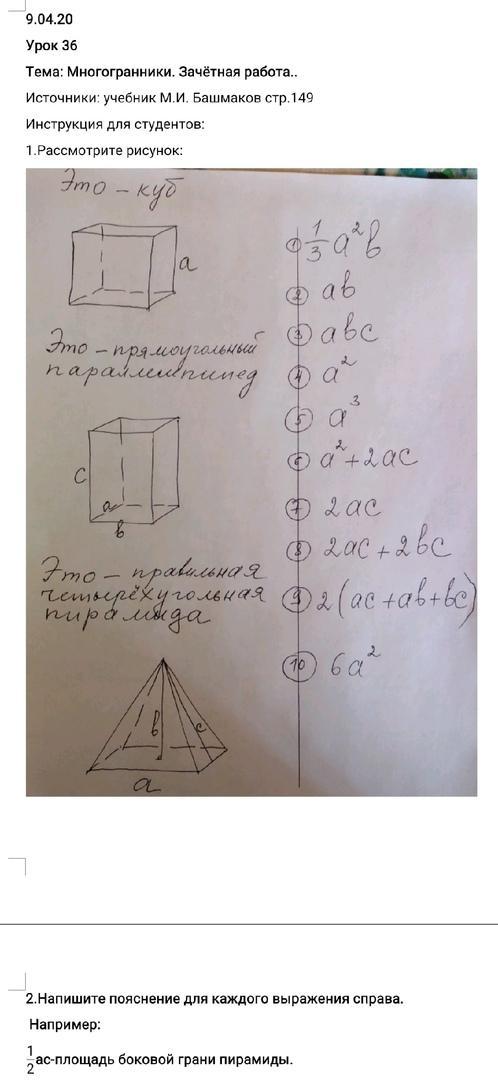 9.04.20
Урок 36
Тема: Многогранники. Зачётная работа..
Источники: учебник М.И. Башмаков стр.149
Инструкция для студентов:
1.Рассмотрите рисунок:
Это – куб
a
Это – прямоугольный
параллелепипед
c
a
в
Это – правильная
четырёхугольная
пирамида
в
c
a
① 1/3 a²в
② aв
③ aвc
④ a²
⑤ a³
⑥ a² + 2ac
⑦ 2ac
⑧ 2ac + 2вc
⑨ 2(ac + aв + вc)
⑩ 6a²
2.Напишите пояснение для каждого выражения справа.
Например:
1/2 ac-площадь боковой грани пирамиды.